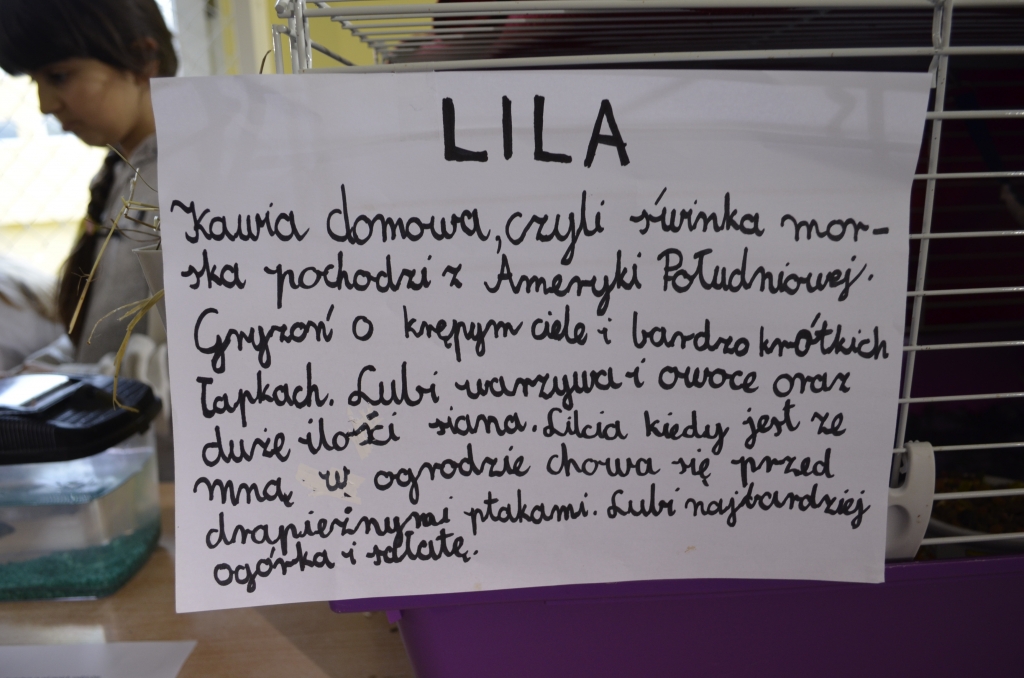 LILA
Kawia domowa, czyli świnka mor-
ska pochodzi z Ameryki Południowej.
Gryzoń o krępym ciele i bardzo krótkich
łapkach. Lubi warzywa i owoce oraz
duże ilości siana. Lilcia kiedy jest ze
mną w ogrodzie chowa się przed
drapieżnymi ptakami. Lubi najbardziej
ogórka i sałatę.